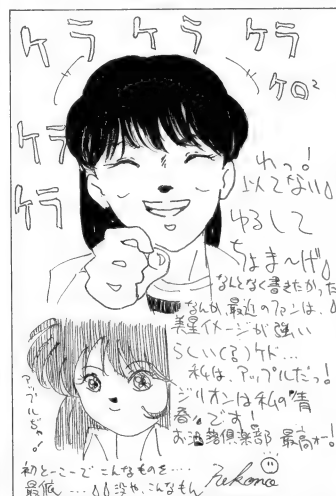 ケラ ケラ ケラ
ケロ²
ケラ
ケラ
わっ!
似てない
ゆるして
ちょま〜げ
なんとなく書きたかった
なんか、最近のファンは、
美星イメージが強い
らしい(る)ケド…
私は、アップルだっ!
ジリオンは私の"青
春"です!
お洒落倶楽部 最高ォー!
アップルぢゃ!
初とーこーでこんなものを……
最低…
没や、こんなもん